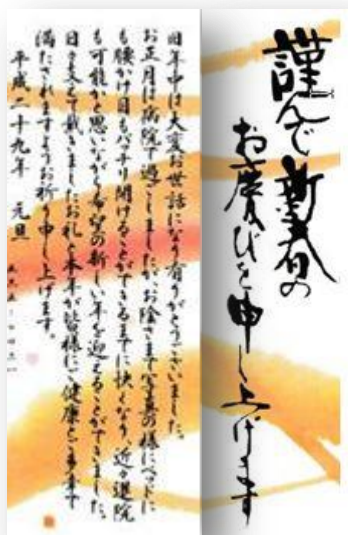 謹んで新春の
お慶びを申し上げます
旧年中は大変お世話になり有りがとうございました。
お正月は病院で過ごしましたが、お陰さまで写真の様にベッドに
も腰かけ目もパッチリ開けることができるまでに快くなり、近々退院
も可能かと思いながら希望の新しい年を迎えることができました。
日々支えて戴きましたお礼と本年が皆様にご健康とご多幸で
満たされますようお祈り申し上げます。
平成二十九年 元旦